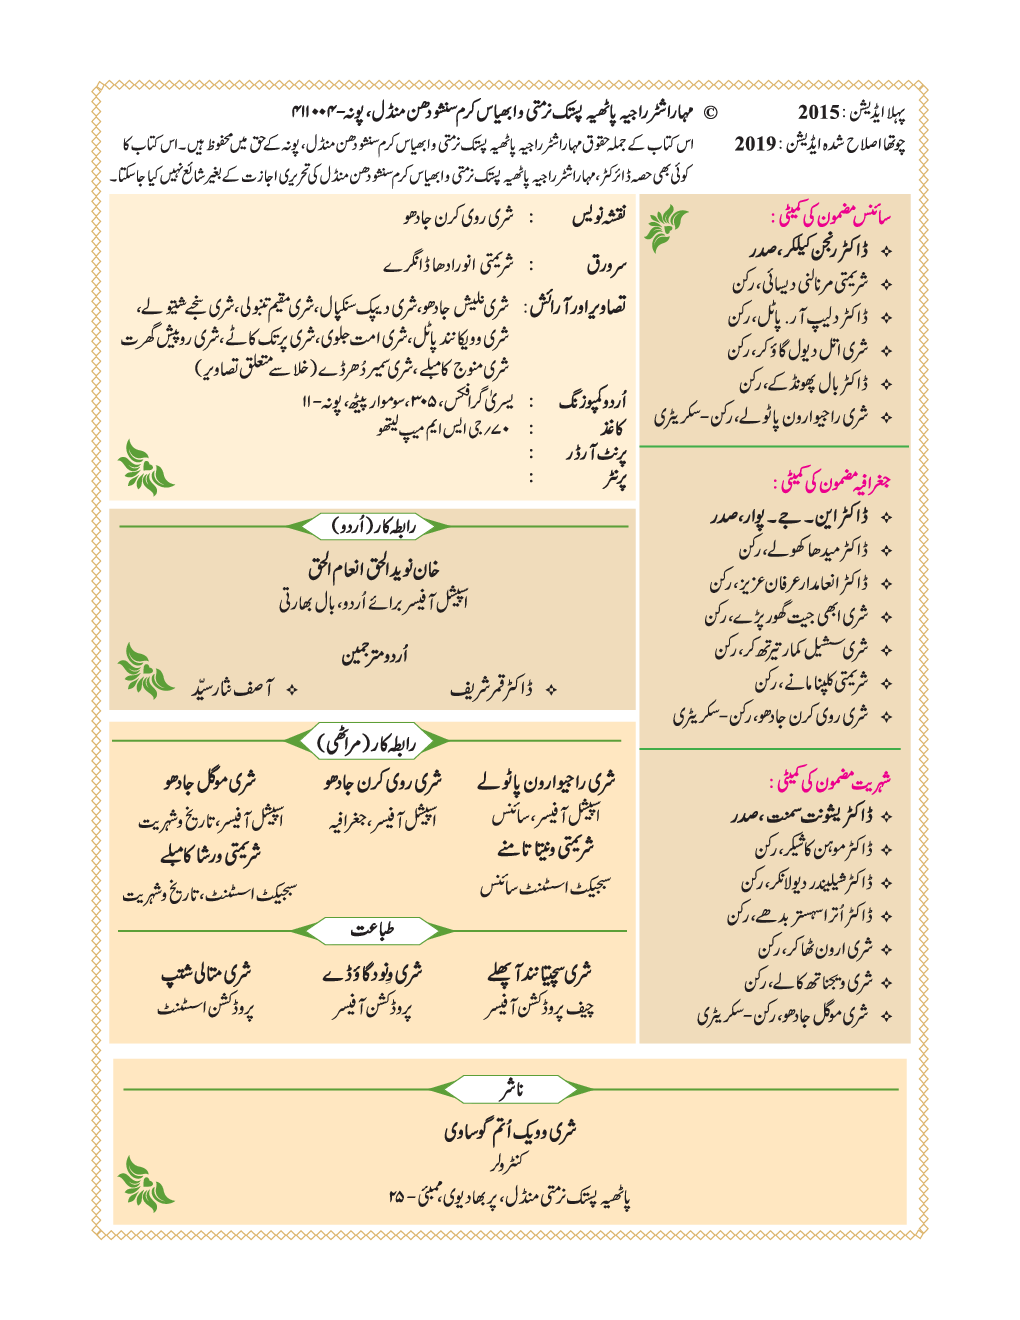 پہلا ایڈیشن : 2015
چوتھا اصلاح شدہ ایڈیشن : 2019
© مہاراشٹر راجیہ پاٹھیہ پستک نرمتی و ابھیاس کرم سنشودھن منڈل، پونہ - ۴۱۱۰۰۴
اس کتاب کے جملہ حقوق مہاراشٹر راجیہ پاٹھیہ پستک نرمتی و ابھیاس کرم سنشودھن منڈل، پونہ کے حق میں محفوظ ہیں۔ اس کتاب کا
کوئی بھی حصہ ڈائرکٹر، مہاراشٹر راجیہ پاٹھیہ پستک نرمتی و ابھیاس کرم سنشودھن منڈل کی تحریری اجازت کے بغیر شائع نہیں کیا جاسکتا۔
سائنس مضمون کی کمیٹی :
ڈاکٹر رنجن کیلکر، صدر
شریمتی مرنالنی دیسائی، رکن
ڈاکٹر دلیپ آر. پاٹل، رکن
شری اتل دیول گاؤکر، رکن
ڈاکٹر بال پھونڈکے، رکن
شری راجیو ارون پاٹولے، رکن - سکریٹری
جغرافیہ مضمون کی کمیٹی :
ڈاکٹر این۔ جے۔ پوار، صدر
ڈاکٹر میدھا کھولے، رکن
ڈاکٹر انعامدار عرفان عزیز، رکن
شری ابھی جیت گھورپڑے، رکن
شری سشیل کمار تیرتھ کر، رکن
شریمتی کلپنا مانے، رکن
شری روی کرن جادھو، رکن - سکریٹری
شہریت مضمون کی کمیٹی :
ڈاکٹر یشونت سمنت، صدر
ڈاکٹر موہن کاشیکر، رکن
ڈاکٹر شیلیندر دیولانکر، رکن
ڈاکٹر اُترا سہستر بدھے، رکن
شری ارون ٹھاکر، رکن
شری ویجناتھ کالے، رکن
شری موگل جادھو، رکن - سکریٹری
نقشہ نویس : شری روی کرن جادھو
سرورق : شریمتی انورادھا ڈانگرے
تصاویر اور آرائش : شری نلیش جادھو، شری دیپک سنکپال، شری مقیم تنبولی، شری سنجے شتیولے،
شری وویکانند پاٹل، شری امت جلوی، شری پرتک کاٹے، شری روپیش گھرت
شری منوج کامبلے، شری سمیر دُھرڈے (خلا سے متعلق تصاویر)
اُردو کمپوزنگ : یسریٰ گرافکس، ۳۰۵، سوموار پیٹھ، پونہ - ۱۱
کاغذ : ۷۰؍ جی ایس ایم میپ لیتھو
پرنٹ آرڈر :
پرنٹر :
رابطہ کار (اُردو)
خان نوید الحق انعام الحق
اسپیشل آفیسر برائے اُردو، بال بھارتی
اُردو مترجمین
ڈاکٹر قمر شریف
آصف نثار سیّد
رابطہ کار (مراٹھی)
شری راجیو ارون پاٹولے
اسپیشل آفیسر، سائنس
شری روی کرن جادھو
اسپیشل آفیسر، جغرافیہ
شری موگل جادھو
اسپیشل آفیسر، تاریخ و شہریت
شریمتی ونیتا تامنے
سبجیکٹ اسسٹنٹ سائنس
شریمتی ورشا کامبلے
سبجیکٹ اسسٹنٹ، تاریخ و شہریت
طباعت
شری سچیتانند آپھلے
چیف پروڈکشن آفیسر
شری وِنود گاؤڈے
پروڈکشن آفیسر
شری متالی شتپ
پروڈکشن اسسٹنٹ
ناشر
شری وویک اُتم گوساوی
کنٹرولر
پاٹھیہ پستک نرمتی منڈل، پربھادیوی، ممبئی - ۲۵